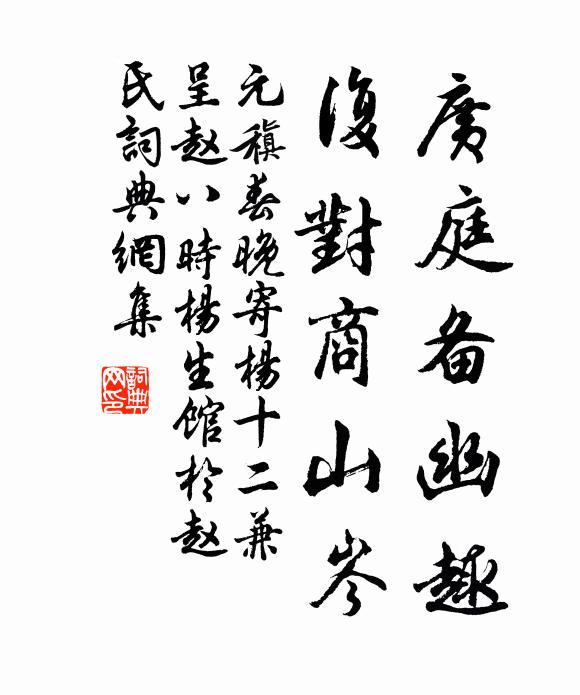 廣庭备幽趣
復對商山岑
元稹春晚寄楊十二兼
呈赵八時楊生馆於赵
氏詞典網集
詞典网印